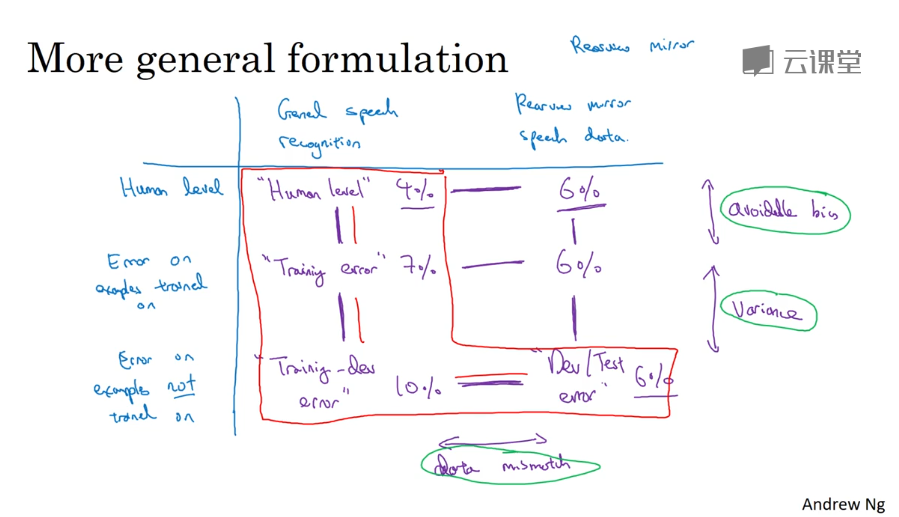 More general formulation
Rearview mirror
云课堂
General speech
recognition
Rearview mirror
speech data.
Human level
"Human level" 4%
6%
avoidable bias
Error on
examples trained
on
"Training error" 7%
6%
Variance
Error on
examples not
trained on
"Training-dev
error" 10%
"Dev/Test
error" 6%
data mismatch
Andrew Ng